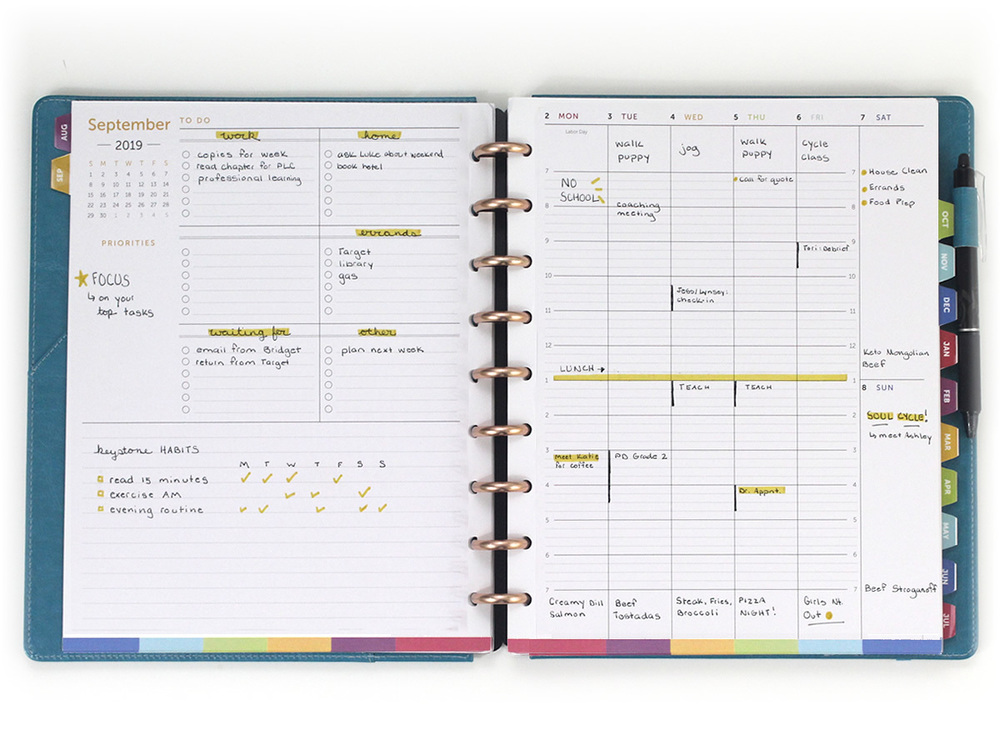 AUG
SEP
September
2019
S M T W T F S
1 2 3 4 5 6 7
8 9 10 11 12 13 14
15 16 17 18 19 20 21
22 23 24 25 26 27 28
29 30 1 2 3 4 5
PRIORITIES
FOCUS
↳ on your
top tasks
TO DO
work
copies for week
read chapter for PLC
professional learning
home
ask Luke about weekend
book hotel
errands
Target
library
gas
waiting for
email from Bridget
return from Target
other
plan next week
keystone HABITS
M T W T F S S
read 15 minutes
exercise AM
evening routine
2 MON
Labor Day
3 TUE
4 WED
5 THU
6 FRI
7 SAT
walk
puppy
jog
walk
puppy
cycle
class
7
8
9
10
11
12
1
2
3
4
5
6
7
NO
SCHOOL
coaching
meeting
Call for quote
Tori: Debrief
check-in
LUNCH →
TEACH
TEACH
Meet Katie
for coffee
PD Grade 2
Dr. Appnt.
Creamy Dill
Salmon
Beef
Tostadas
Steak, Fries,
Broccoli
PIZZA
NIGHT!
Girls Nt.
Out
7
8
9
10
11
12
1
2
3
4
5
6
7
House Clean
Errands
Food Prep
Keto Mongolian
Beef
8 SUN
SOUL CYCLE!
↳ meet Ashley
Beef Stroganoff
OCT
NOV
DEC
JAN
FEB
MAR
APR
MAY
JUN
JUL